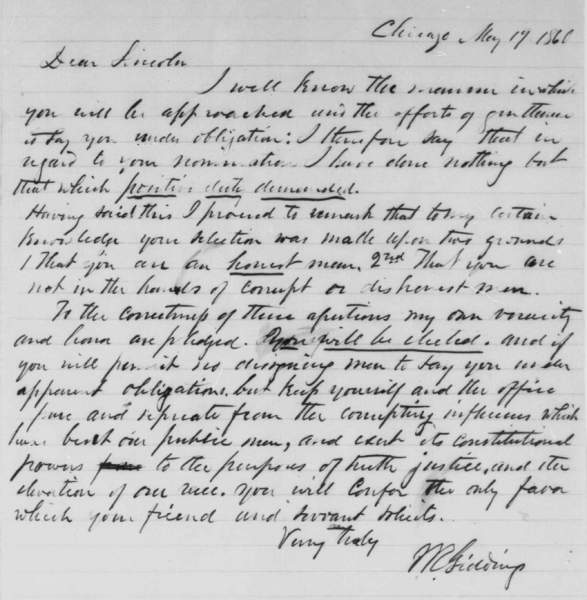 Chicago May 19 1860
Dear Lincoln
I well know the manner in which
you will be approached and the efforts of gentlemen
to lay you under obligation: I therefore say that in
regard to your nomination I have done nothing but
that which positive duty demanded.
Having said this I proceed to remark that to my certain
knowledge your selection was made upon two grounds
1 That you are an honest man. 2nd That you are
not in the hands of corrupt or dishonest men.
To the correctness of these my own veracity
and honor are pledged. You will be elected. and if
you will permit no designing men to lay you under
apparent obligations, but keep yourself and the office
pure and separate from the corrupting influences which
have beset our public men, and exert its constitutional
powers to the purposes of truth justice, and the
elevation of our race. you will confer the only favor
which your friend and servant solicits.
Very truly
Giddings